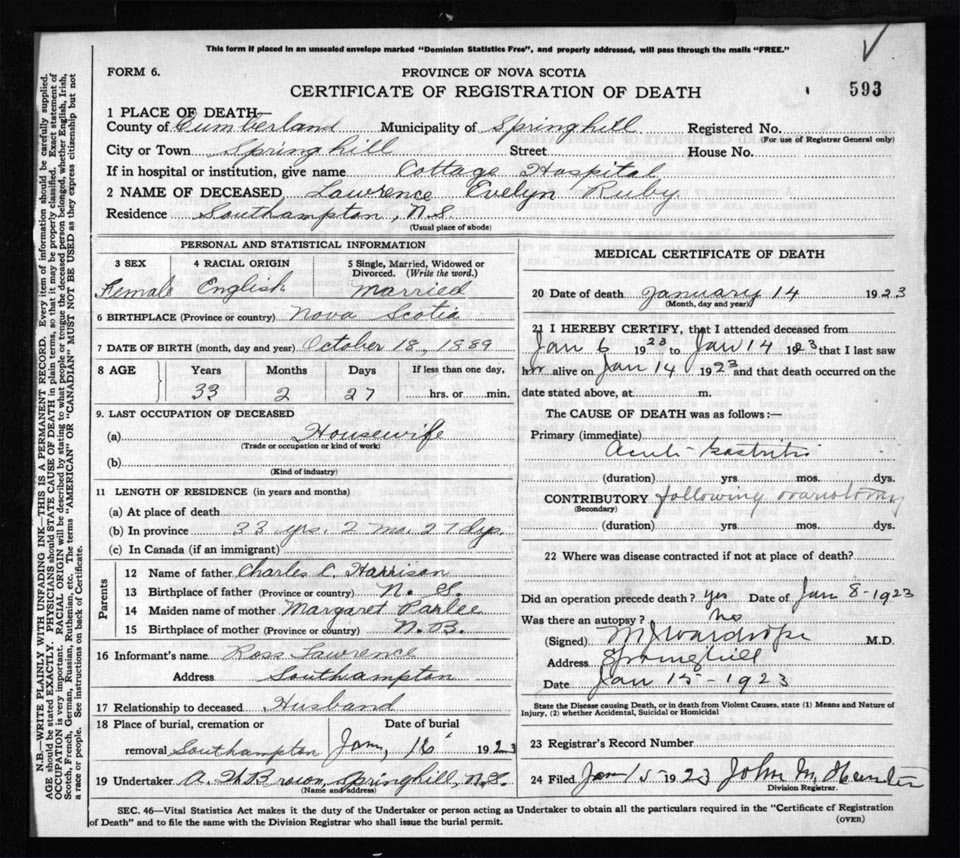 This form if placed in an unsealed envelope marked "Dominion Statistics Free", and properly addressed, will pass through the mails "FREE."
FORM 6.
PROVINCE OF NOVA SCOTIA
CERTIFICATE OF REGISTRATION OF DEATH
593
1 PLACE OF DEATH—
County of Cumberland Municipality of Springhill Registered No.
(For use of Registrar General only)
City or Town Springhill Street House No.
If in hospital or institution, give name Cottage Hospital
2 NAME OF DECEASED Lawrence Evelyn Ruby
Residence Southampton, N.S.
(Usual place of abode)
PERSONAL AND STATISTICAL INFORMATION
3 SEX 4 RACIAL ORIGIN 5 Single, Married, Widowed or Divorced. (Write the word.)
Female English Married
6 BIRTHPLACE (Province or country) Nova Scotia
7 DATE OF BIRTH (month, day and year) October 18, 1889
8 AGE Years Months Days If less than one day,
33 2 27 hrs. or min.
9. LAST OCCUPATION OF DECEASED
(a) Housewife
(Trade or occupation or kind of work)
(b)
(Kind of industry)
11 LENGTH OF RESIDENCE (in years and months)
(a) At place of death
(b) In province 33 yrs. 2 mo. 27 dys.
(c) In Canada (if an immigrant)
Parents
12 Name of father Charles C. Harrison
13 Birthplace of father (Province or country) N. S.
14 Maiden name of mother Margaret Parlee
15 Birthplace of mother (Province or country) N.B.
16 Informant's name Ross Lawrence
Address Southampton
17 Relationship to deceased Husband
18 Place of burial, cremation or Date of burial
removal Southampton Jan, 16 1923
19 Undertaker A. W Brown, Springhill, N.S.
(Name and address)
MEDICAL CERTIFICATE OF DEATH
20 Date of death January 14 1923
(Month, day and year)
21 I HEREBY CERTIFY, that I attended deceased from
Jan 6 1923 to Jan 14 1923 that I last saw
her alive on Jan 14 1923 and that death occurred on the
date stated above, at m.
The CAUSE OF DEATH was as follows:—
Primary (immediate)
Acute Gastritis
(duration) yrs. mos. dys.
CONTRIBUTORY following ovariotomy
(Secondary)
(duration) yrs. mos. dys.
22 Where was disease contracted if not at place of death?
Did an operation precede death? yes Date of Jan 8-1923
Was there an autopsy? No
(Signed) M J Wardrope M.D.
Address Springhill
Date Jan 15-1923
State the Disease causing Death, or in death from Violent Causes, state (1) Means and Nature of
Injury, (2) whether Accidental, Suicidal or Homicidal
23 Registrar's Record Number
24 Filed Jan 15-1923 John M. Hunter
Division Registrar.
SEC. 46—Vital Statistics Act makes it the duty of the Undertaker or person acting as Undertaker to obtain all the particulars required in the "Certificate of Registration
of Death" and to file the same with the Division Registrar who shall issue the burial permit.
(OVER)
N.B.—WRITE PLAINLY WITH UNFADING INK—THIS IS A PERMANENT RECORD. Every item of information should be carefully supplied.
AGE should be stated EXACTLY. PHYSICIANS should STATE CAUSE OF DEATH in plain terms, so that it may be properly classified. Exact statement of
OCCUPATION is very important. RACIAL ORIGIN will be described by stating to what people or tongue the deceased person belonged, whether English, Irish,
Scotch, French, German, Russian, Ruthenian, etc. The terms "AMERICAN" OR "CANADIAN" MUST NOT BE USED as they express citizenship but not
a race or people. See instructions on back of Certificate.